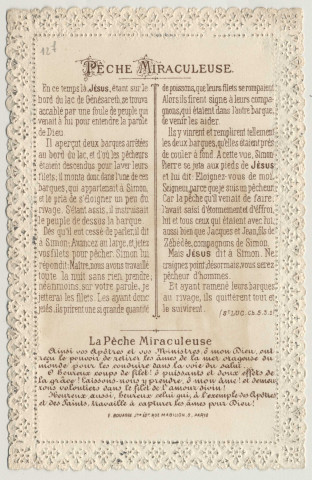 PÊCHE MIRACULEUSE.
En ce temps là Jésus, étant sur le
bord du lac de Génésareth, se trouva
accablé par une foule de peuple qui
venait à lui pour entendre la parole
de Dieu.
Il aperçut deux barques arrêtées
au bord du lac, et d'où les pêcheurs
étaient descendus pour laver leurs
filets; il monta donc dans l'une de ces
barques, qui appartenait à Simon,
et le pria de s'éloigner un peu du
rivage. S'étant assis, il instruisait
le peuple de dessus la barque.
Dès qu'il eût cessé de parler, il dit
à Simon: Avancez au large, et jetez
vos filets pour pêcher. Simon lui
répondit: Maître, nous avons travaillé
toute la nuit sans rien prendre;
néanmoins, sur votre parole, je
jetterai les filets. Les ayant donc
jetés, ils prirent une si grande quantité
de poissons, que leurs filets se rompaient
Alors ils firent signe à leurs compa-
gnons, qui étaient dans l'autre barque,
de venir les aider.
Ils y vinrent et remplirent tellement
les deux barques, qu'elles étaient près
de couler à fond. A cette vue, Simon
Pierre se jeta aux pieds de Jésus;
et lui dit: Eloignez-vous de moi,
Seigneur, parce que je suis un pêcheur.
Car la pêche qu'il venait de faire
l'avait saisi d'étonnement et d'effroi,
lui et tous ceux qui étaient avec lui
aussi bien que Jacques et Jean, fils de
Zébédée, compagnons de Simon.
Mais Jésus dit à Simon: Ne
craignez point désormais, vous serez
pêcheur d'hommes.
Et ayant ramené leurs barques
au rivage, ils quittèrent tout et
le suivirent.
La Pêche Miraculeuse
Ainsi vos Apôtres et vos Ministres, ô mon Dieu, ont
reçu le pouvoir de retirer les âmes de la mer orageuse du
monde pour les conduire dans la voie du salut.
O heureux coups de filet! ô puissants et doux effets de
la grâce! Laissons-nous y prendre, ô mon âme! et demeu
rons volontiers dans le filet de l'amour divin!
Heureux aussi, heureux celui qui, à l'exemple des Apôtres
et des Saints, travaille à capturer les âmes pour Dieu!